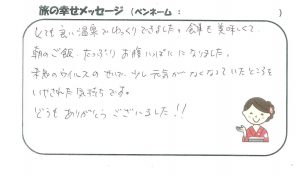 旅の幸せメッセージ （ペンネーム： ）
とても良い温泉でゆっくりできました。食事も美味しくて、
朝のご飯、たっぷりお腹いっぱいになりました。
のウイルスのせいで、少し元気がなくなっていたところを
いやされた気持ちです。
どうもありがとうございました!!